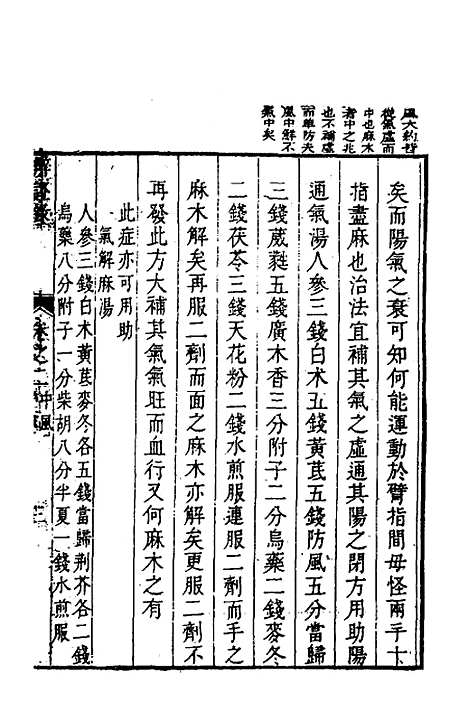 風大約皆
從氣虛而
中也麻木
者中之兆
也不補虛
而單防夫
風中鮮不
氣中矣
矣而陽氣之衰可知何能運動於臂指間毋怪兩手十
指盡麻也治法宜補其氣之虛通其陽之閉方用助陽
通氣湯人參三錢白朮五錢黃芪五錢防風五分當歸
三錢葳蕤五錢廣木香三分附子二分烏藥二錢麥冬
二錢茯苓三錢天花粉二錢水煎服連服二劑而手之
麻木解矣再服二劑而面之麻木亦解矣更服二劑不
再發此方大補其氣氣旺而血行又何麻木之有
此症亦可用助
氣解麻湯
人參三錢白朮黃芪麥冬各五錢當歸荊芥各二錢
烏藥八分附子一分柴胡八分半夏一錢水煎服
辨證錄
卷之二 中風